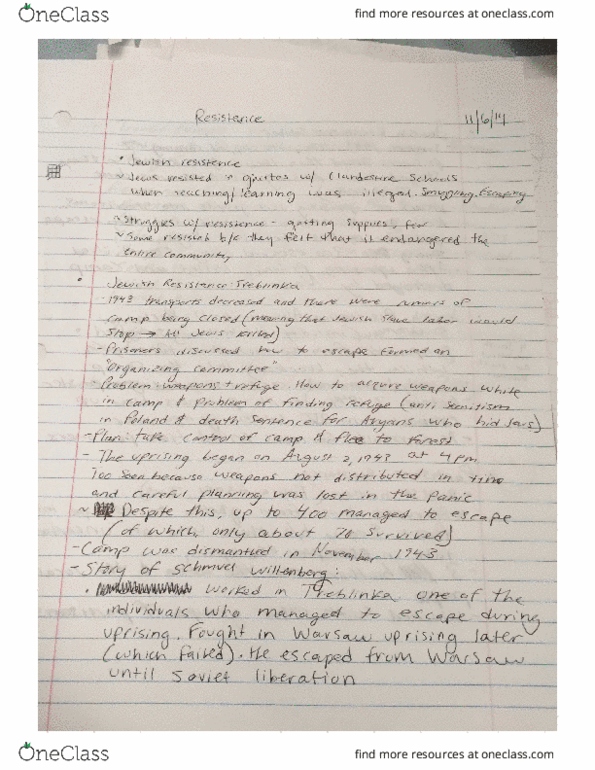 OneClass
find more resources at oneclass.com
Resistance 11/6/14
• Jewish resistence
~ Jews resisted in ghettos w/ Clandestine Schools
when teaching/learning was illegal. Smuggling. Escaping
~ Struggles w/ resistence - getting supplies, few
~ Some resisted b/c they felt that it endangered the
entire community
• Jewish Resistance: Treblinka
- 1943 transports decreased and there were rumors of
camp being closed (meaning that Jewish slave labor would
stop → All Jews killed)
- Prisoners discussed how to escape formed an
"organizing committee"
- Problem: weapons + refuge. How to acquire weapons while
in camp & problem of finding refuge (anti semitism
in Poland & death sentence for Aryans who hid Jews)
- Plan: take control of camp & flee to forest
- The uprising began on August 2, 1943 at 4pm
Too soon because weapons not distributed in time
and careful planning was lost in the panic
~ Despite this, up to 400 managed to escape
(of which, only about 70 survived)
- Camp was dismantled in November 1943
- Story of Schmuel Willenberg:
• Worked in Treblinka one of the
individuals who managed to escape during
uprising. Fought in Warsaw uprising later
(which failed). He escaped from Warsaw
until Soviet liberation
OneClass
find more resources at oneclass.com